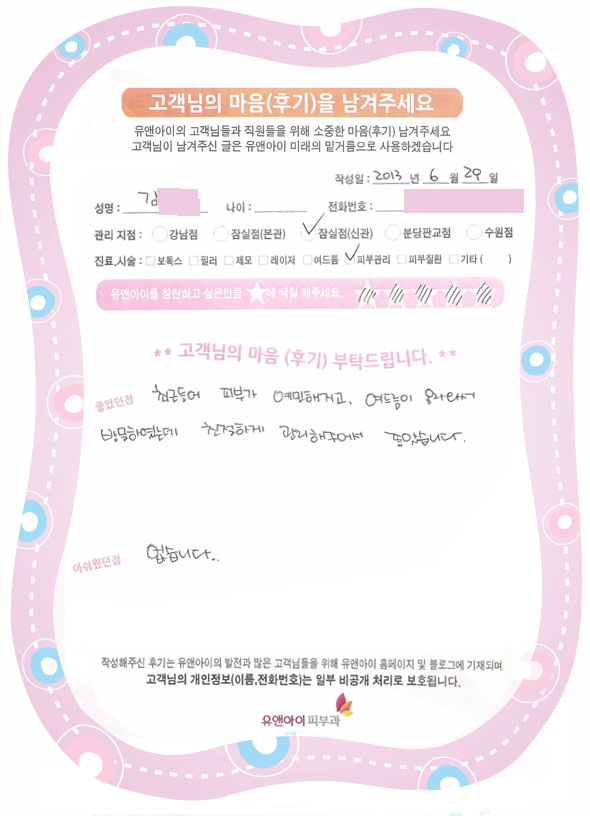 고객님의 마음(후기)을 남겨주세요
유앤아이의 고객님들과 직원들을 위해 소중한 마음(후기) 남겨주세요
고객님이 남겨주신 글은 유앤아이 미래의 밑거름으로 사용하겠습니다
작성일 : 2013 년 6 월 29 일
성명 : 김 나이 : 전화번호 :
관리 지점 : 강남점 잠실점(본관) 잠실점(신관) 분당판교점 수원점
진료,시술 : 보톡스 필러 제모 레이저 여드름 피부관리 피부질환 기타 ( )
유앤아이를 칭찬하고 싶은만큼 ★에 색칠 해주세요.
** 고객님의 마음 (후기) 부탁드립니다. **
좋았던점 최근들어 피부가 예민해지고, 여드름이 올라와서
방문하였는데 친절하게 관리해주어서 좋았습니다.
아쉬웠던점 없습니다..
작성해주신 후기는 유앤아이의 발전과 많은 고객님들을 위해 유앤아이 홈페이지 및 블로그에 기재되며
고객님의 개인정보(이름,전화번호)는 일부 비공개 처리로 보호됩니다.
유앤아이피부과